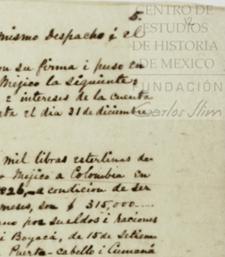 5.
mismo Despacho i el
su firma i puso en
Mejico la siguiente
é intereses de la cuenta
el dia 31 de diciembre
mil libras esterlinas de
Mejico a Colombia en
826, a condicion de ser
meses, son $ 315,000....
por sueldos i raciones
i Boyacá, de 15 de Setiem
Puerto-cabello i Cumaná
CENTRO DE
ESTUDIOS
DE HISTORIA
DE MEXICO
FUNDACIÓN
Carlos Slim